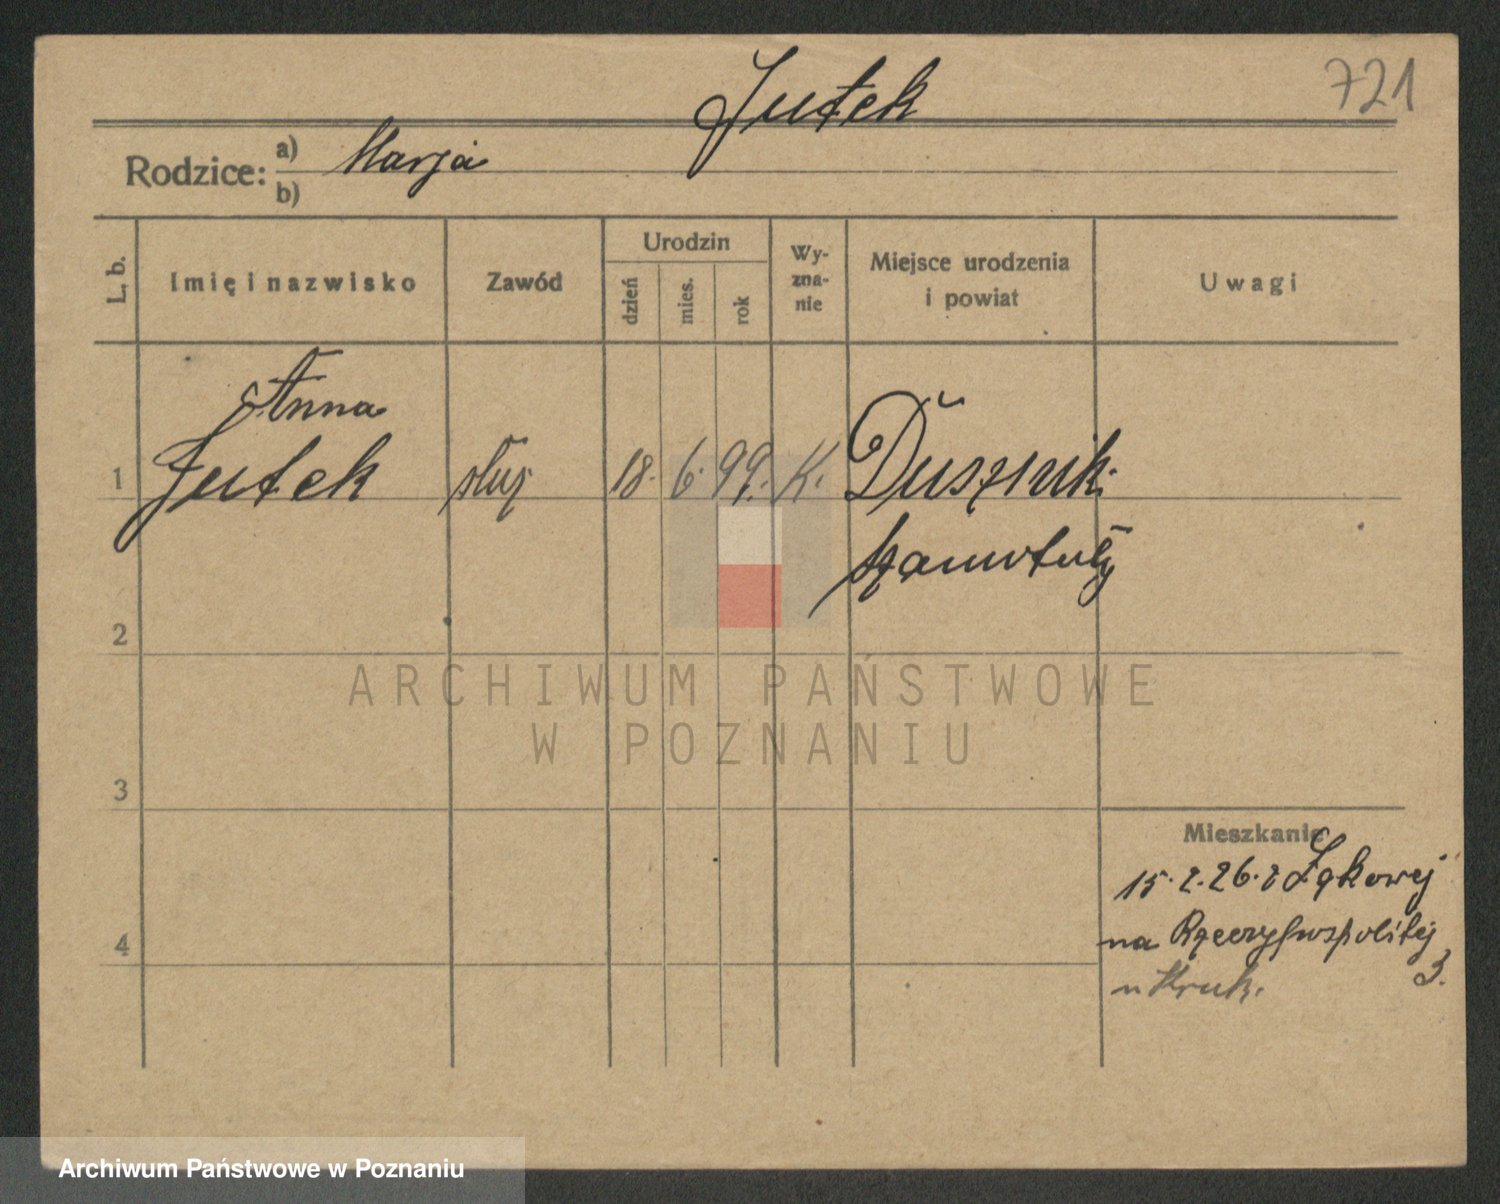 Jutek
721
Rodzice: a) Marja
b)
L. b. Imię i nazwisko Zawód Urodzin dzień mies. rok Wy-zna-nie Miejsce urodzenia i powiat Uwagi
Anna
1 Jutek służ 18. 6. 99. K. Duszniki
Szamotuły
2
ARCHIWUM PAŃSTWOWE
W POZNANIU
3
Mieszkanie
15. 2. 26. z Łąkowej
4 na Rzeczypospolitej
3.
u Kruk.
Archiwum Państwowe w Poznaniu